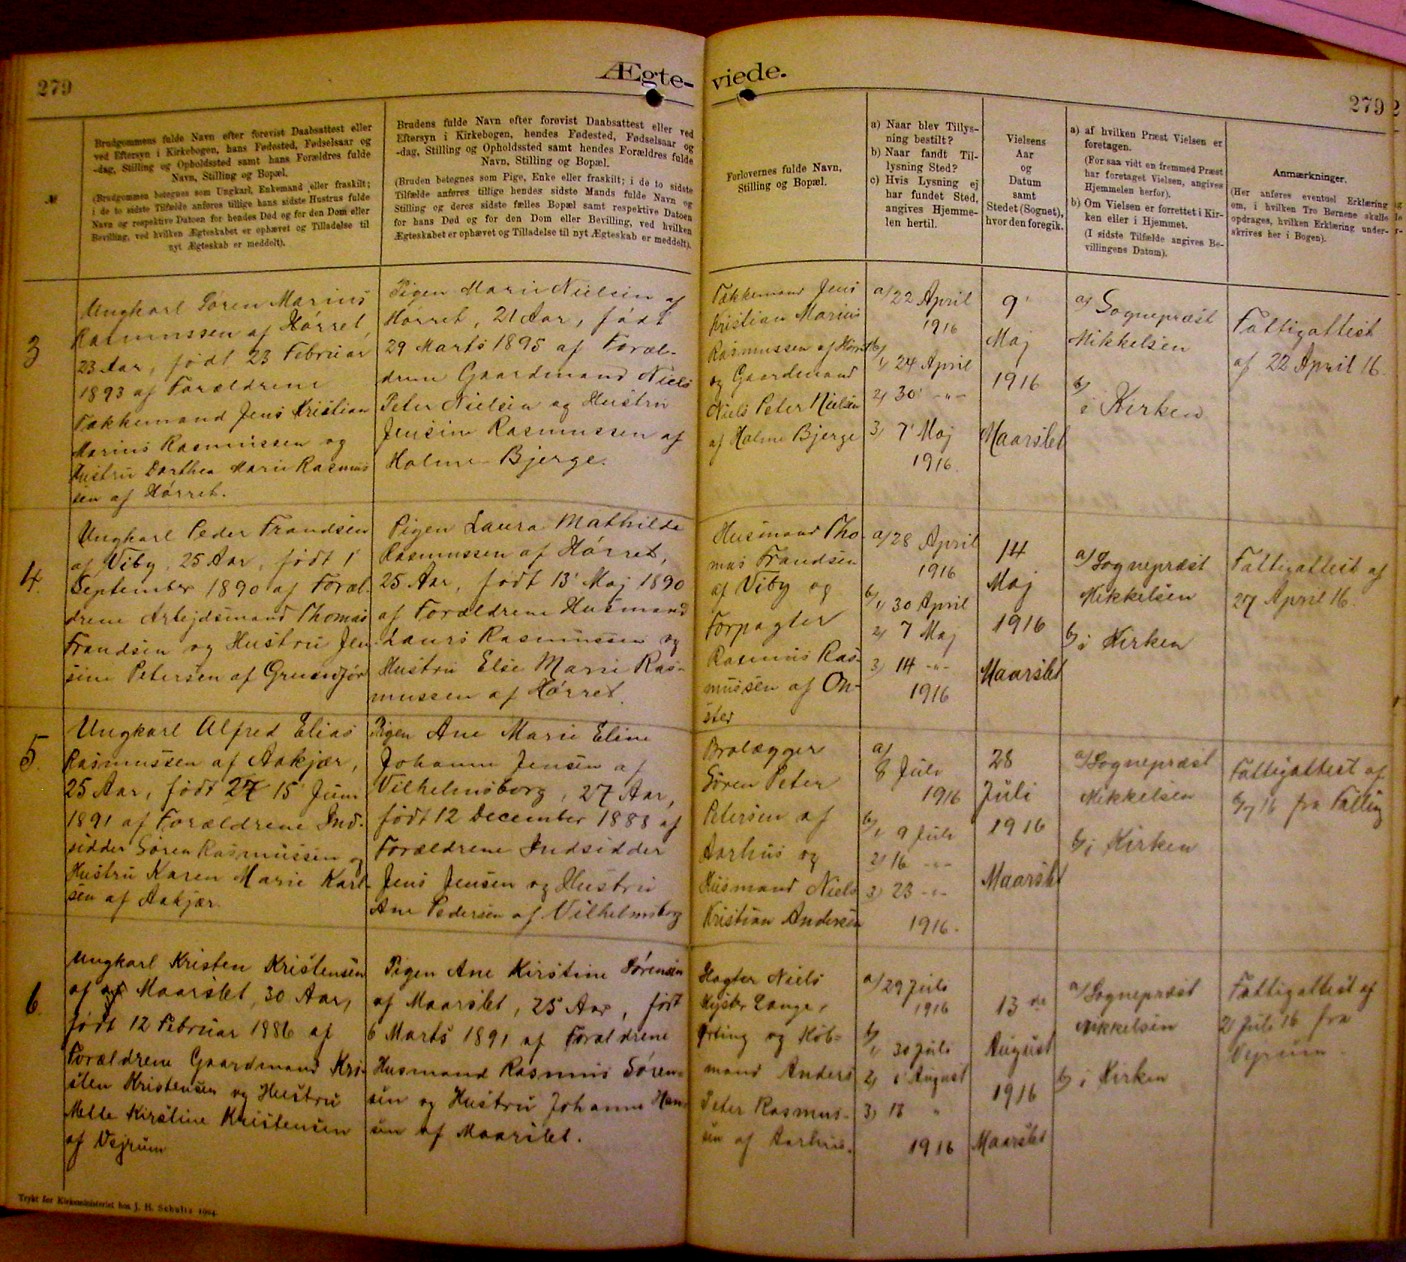 279
Ægte-
viede.
279
№
Brudgommens fulde Navn efter forevist Daabsattest eller
ved Eftersyn i Kirkebogen, hans Fødested, Fødselsaar og
-dag, Stilling og Opholdssted samt hans Forældres fulde
Navn, Stilling og Bopæl.
(Brudgommen betegnes som Ungkarl, Enkemand eller fraskilt;
i de to sidste Tilfælde anføres tillige hans sidste Hustrus fulde
Navn og respektive Datoen for hendes Død og for den Dom eller
Bevilling, ved hvilken Ægteskabet er ophævet og Tilladelse til
nyt Ægteskab er meddelt).
Brudens fulde Navn efter forevist Daabsattest eller ved
Eftersyn i Kirkebogen, hendes Fødested, Fødselsaar og
-dag, Stilling og Opholdssted samt hendes Forældres fulde
Navn, Stilling og Bopæl.
(Bruden betegnes som Pige, Enke eller fraskilt; i de to sidste
Tilfælde anføres tillige hendes sidste Mands fulde Navn og
Stilling og deres sidste fælles Bopæl samt respektive Datoen
for hans Død og for den Dom eller Bevilling, ved hvilken
Ægteskabet er ophævet og Tilladelse til nyt Ægteskab er meddelt).
Forlovernes fulde Navn,
Stilling og Bopæl.
a) Naar blev Tillys-
ning bestilt?
b) Naar fandt Til-
lysning Sted?
c) Hvis Lysning ej
har fundet Sted,
angives Hjemme-
len hertil.
Vielsens
Aar
og
Datum
samt
Stedet (Sognet),
hvor den foregik.
a) af hvilken Præst Vielsen er
foretagen.
(For saa vidt en fremmed Præst
har foretaget Vielsen, angives
Hjemmelen herfor).
b) Om Vielsen er forrettet i Kir-
ken eller i Hjemmet.
(I sidste Tilfælde angives Be-
villingens Datum).
Anmærkninger.
(Her anføres eventuel Erklæring
om, i hvilken Tro Børnene skulle
opdrages, hvilken Erklæring under-
skrives her i Bogen).
3
Ungkarl Søren Marius
Rasmussen af Hørret,
23 Aar, født 23 Februar
1893 af Forældrene
Takkemand Jens Kristian
Marius Rasmussen og
Hustru Dorthea Marie Rasmus
sen af Hørret.
Pigen Marie Nielsen af
Hørret, 21 Aar, født
29 Marts 1895 af Foræl-
drene Gaardmand Niels
Peter Nielsen og Hustru
Jensine Rasmussen af
Holme Bjerge.
Takkemand Jens
Kristian Marius
Rasmussen af Hørret
og Gaardmand
Niels Peter Nielsen
af Holme Bjerge
a/ 22 April
1916
b/
1) 24 April
2) 30' -"-
3) 7' Maj
1916.
9'
Maj
1916
Maarslet
a/ Sognepræst
Mikkelsen
b/
i Kirken
Fattigattest
af 22 April 16.
4.
Ungkarl Peder Frandsen
af Viby, 25 Aar, født 1'
September 1890 af Foræl-
drene Arbejdsmand Thomas
Frandsen og Hustru Jen-
sine Petersen af
Pigen Laura Mathilde
Rasmussen af Hørret,
25 Aar, født 13' Maj 1890
af Forældrene Husmand
Laurs Rasmussen og
Hustru Else Marie Ras-
mussen af Hørret.
Husmand Tho-
mas Frandsen
af Viby og
Forpagter
Rasmus Ras-
mussen af On-
sted
a/ 28 April
1916
b/
1) 30 April
2) 7 Maj
3) 14 -"-
1916
14
Maj
1916
Maarslet
a/ Sognepræst
Mikkelsen
b/ i Kirken
Fattigattest af
27 April 16.
5.
Ungkarl Alfred Elias
Rasmussen af Aakjær,
25 Aar, født 15' Juni
1891 af Forældrene Ind-
sidder Søren Rasmussen og
Hustru Karen Marie Karl-
sen af Aakjær.
Pigen Ane Marie Eline
Johanne Jensen af
Vilhelmsborg, 27 Aar,
født 12 December 1888 af
Forældrene Indsidder
Jens Jensen og Hustru
Ane Pedersen af Vilhelmsborg
Brolægger
Søren Peter
Petersen af
Aarhus og
Husmand Niels
Kristian Andersen
a/
8 Juli
1916
b/
1) 9 Juli
2) 16 -"-
3) 23 -"-
1916.
28
Juli
1916
Maarslet
a/ Sognepræst
Mikkelsen
b/ i Kirken
Fattigattest af
6/7 16 fra Falling
6.
Ungkarl Kristen Kristensen
af Maarslet, 30 Aar,
født 12 Februar 1886 af
Forældrene Gaardmand Kri-
sten Kristensen og Hustru
Mette Kirstine Kristensen
af Vejrum
Pigen Ane Kirstine Sørensen
af Maarslet, 25 Aar, født
6 Marts 1891 af Forældrene
Husmand Rasmus Søren-
sen og Hustru Johanne Han-
sen af Maarslet.
Niels
Lange,
Ørting og
mand Anders
Peter Rasmus-
sen af Aarhus.
a/ 29 Juli
1916
b/
1) 30 Juli
2) 6' August
3) 13 "
1916
13 de
August
1916
Maarslet
a/ Sognepræst
Mikkelsen
b/ i Kirken
Fattigattest af
21 Juli 16 fra
Vejrum.
Trykt for Kirkeministeriet hos J. H. Schultz 1904.